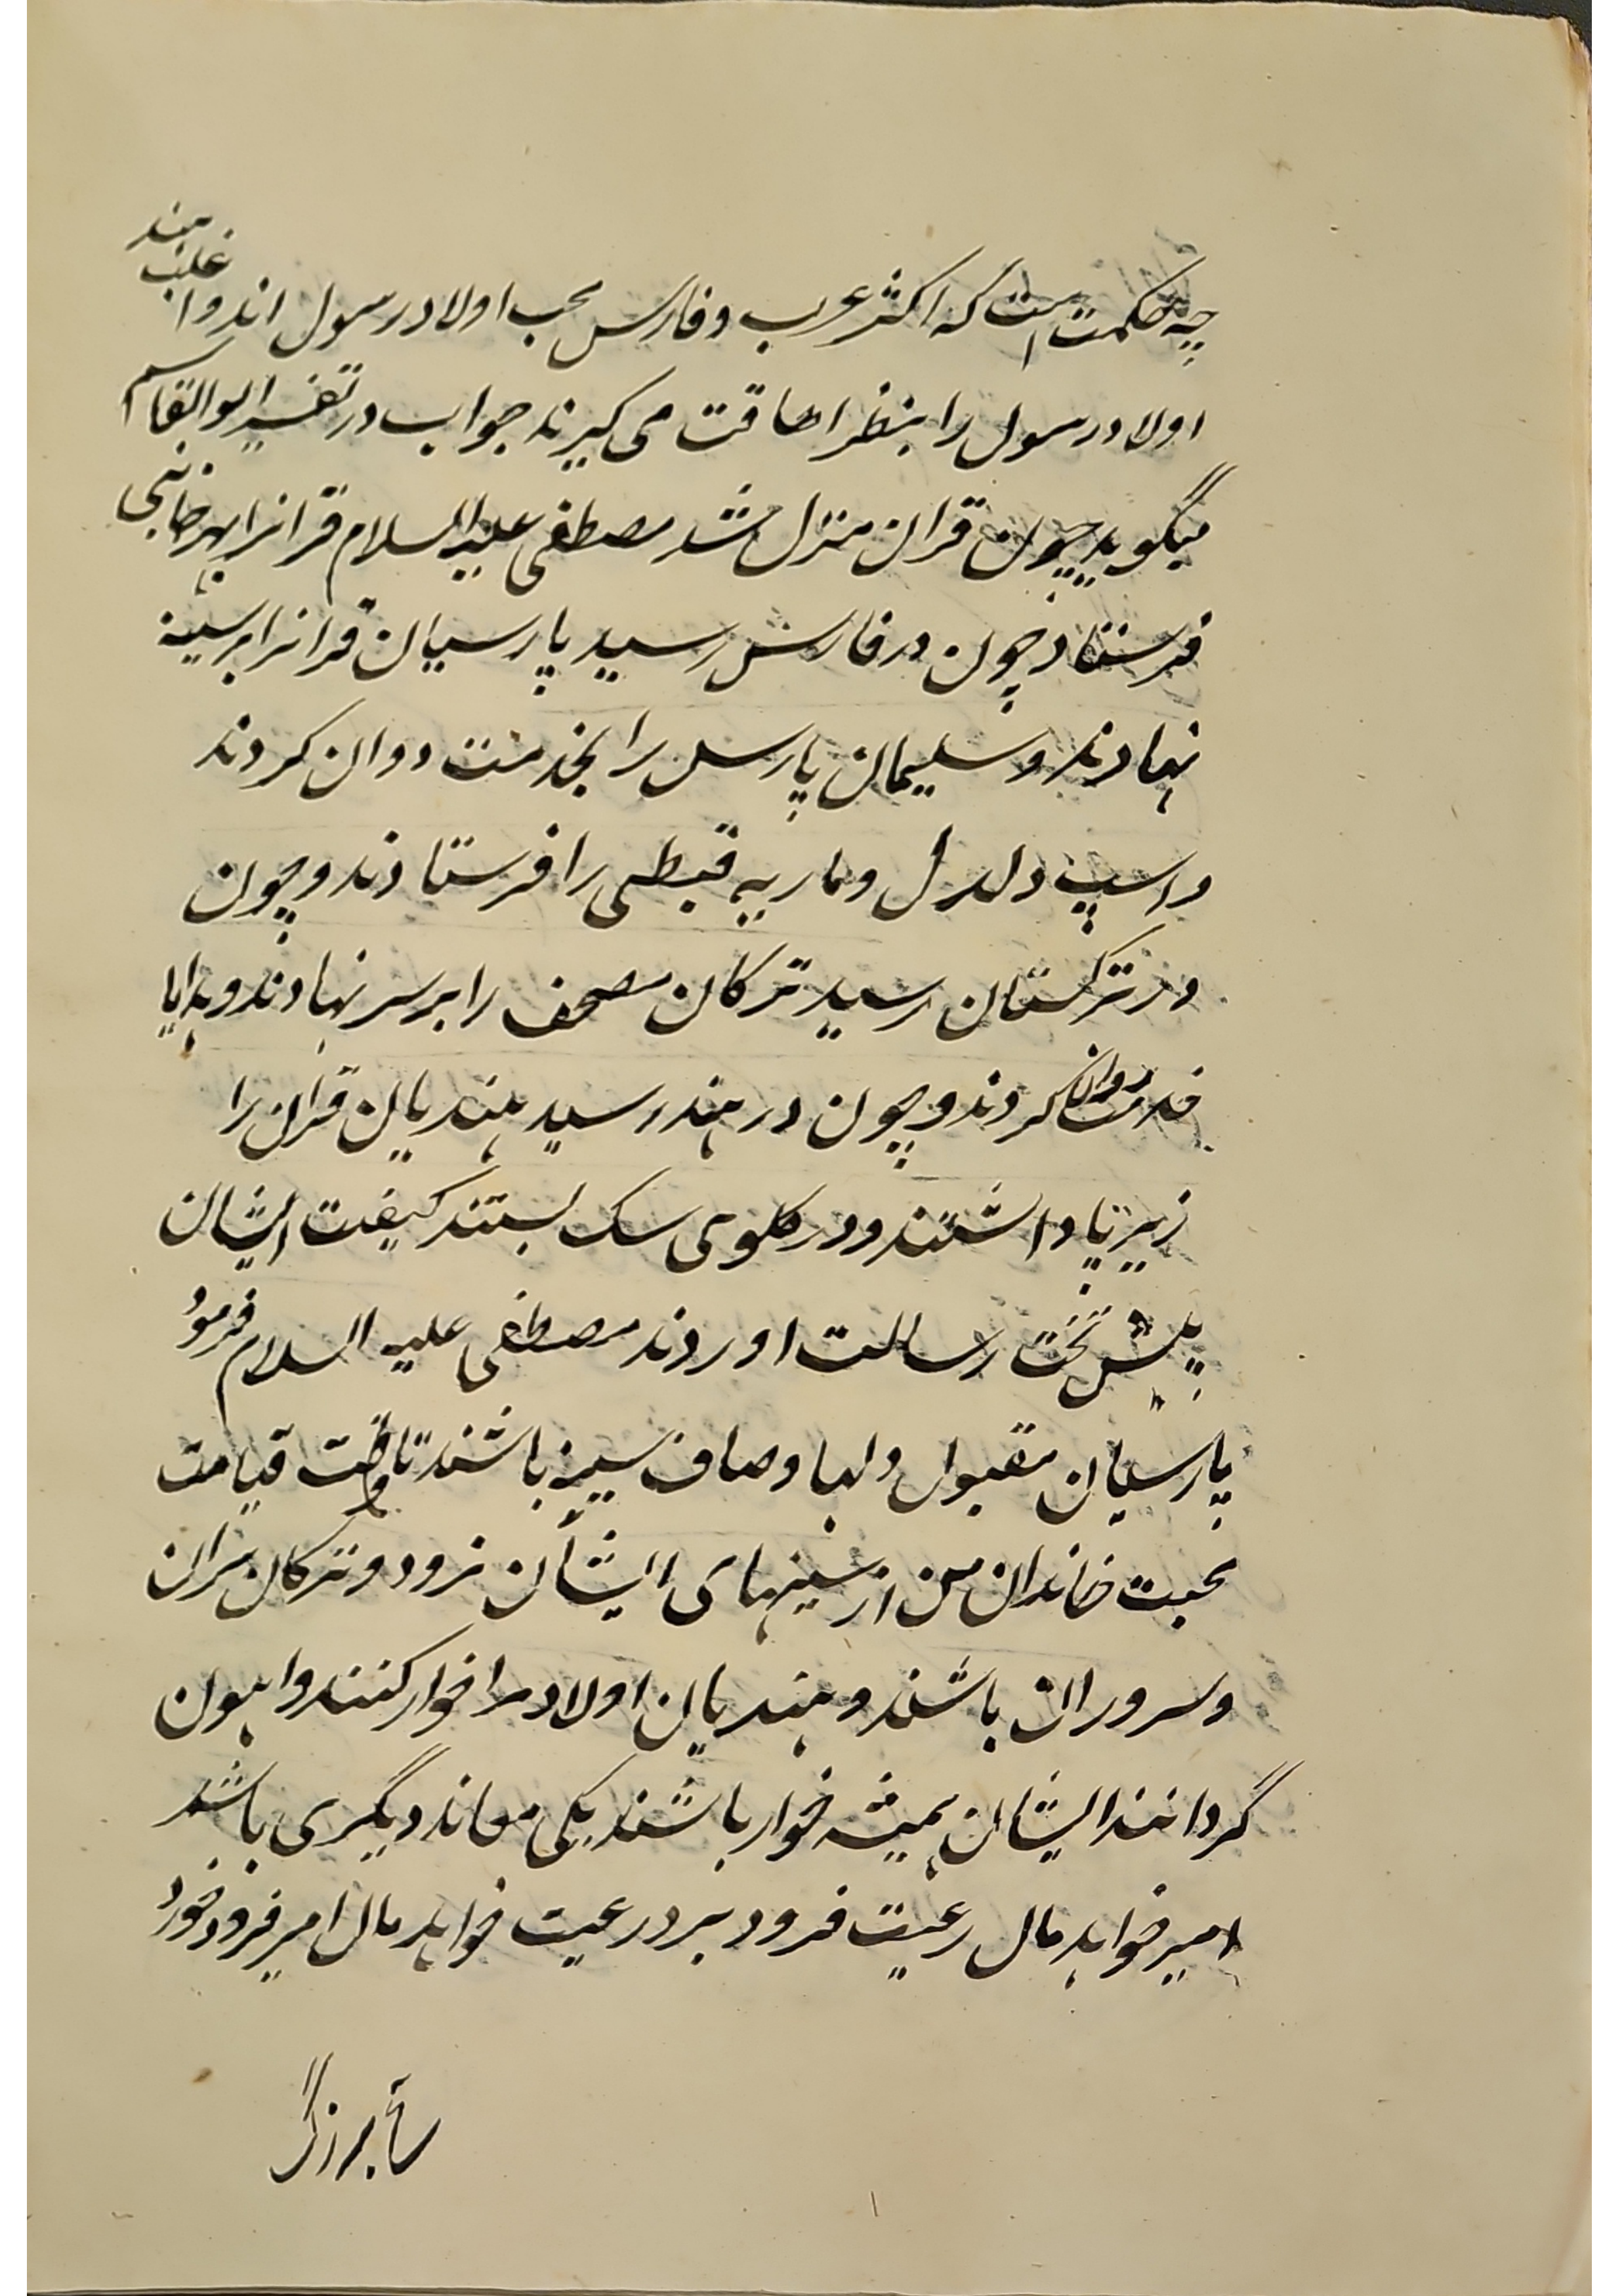 چه حکمت است که اکثر عرب و فارس محب اولاد رسول اند و اغلب هند
اولاد رسول را بنظر اهاقت می کیرند جواب در تفسیر ابوالقاسم
میگوید چون قران منزل شد مصطفی علیه السلام قرانرا بهر جانبی
فرستاد چون در فارس رسید پارسیان قرانرا بر سینه
نهادند و سلیمان پارس را بخدمت روان کردند
و اسپ دلدل و ماریه قبطی را فرستادند و چون
در ترکستان رسید ترکان مصحف را بر سر نهادند و هدایا
خدمت روان کردند و چون در هند رسید هندیان قران را
زیر پا داشتند و در کلوی سک بستند کیفیت ایشان
پیش تخت رسالت اوردند مصطفی علیه السلام فرمود
پارسیان مقبول دلها و صاف سینه باشند تا وقت قیامت
محبت خاندان من از سینهای ایشان نرود و ترکان سران
و سروران باشند و هندیان اولاد مرا خوار کنند و ایهون
گردانند ایشان همیشه خوار باشند یکی معاند دیگری باشد
امیر خواهد مال رعیت فرود برد رعیت خواهد مال امیر فرود خورد